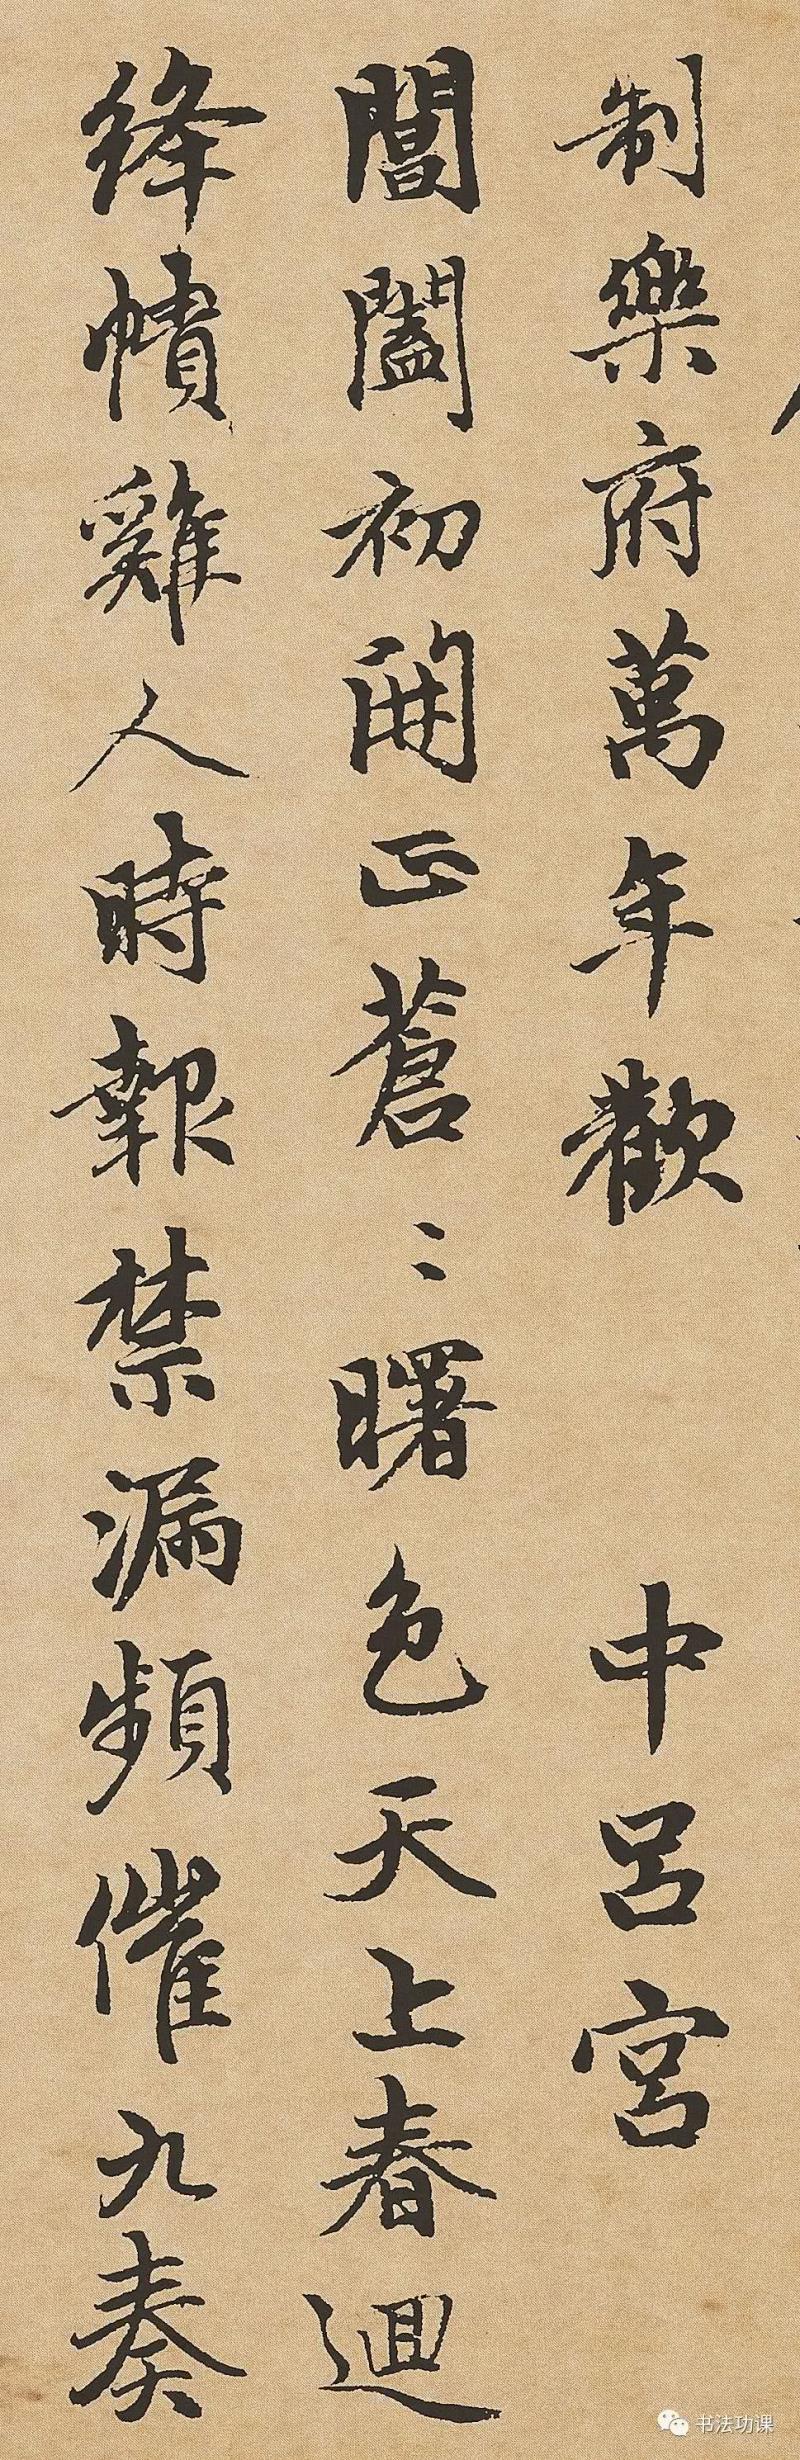 制樂府萬年歡 中呂宮
閶闔初開正蒼〻曙色天上春迴
絳幘雞人時報禁漏頻催九奏
书法功课